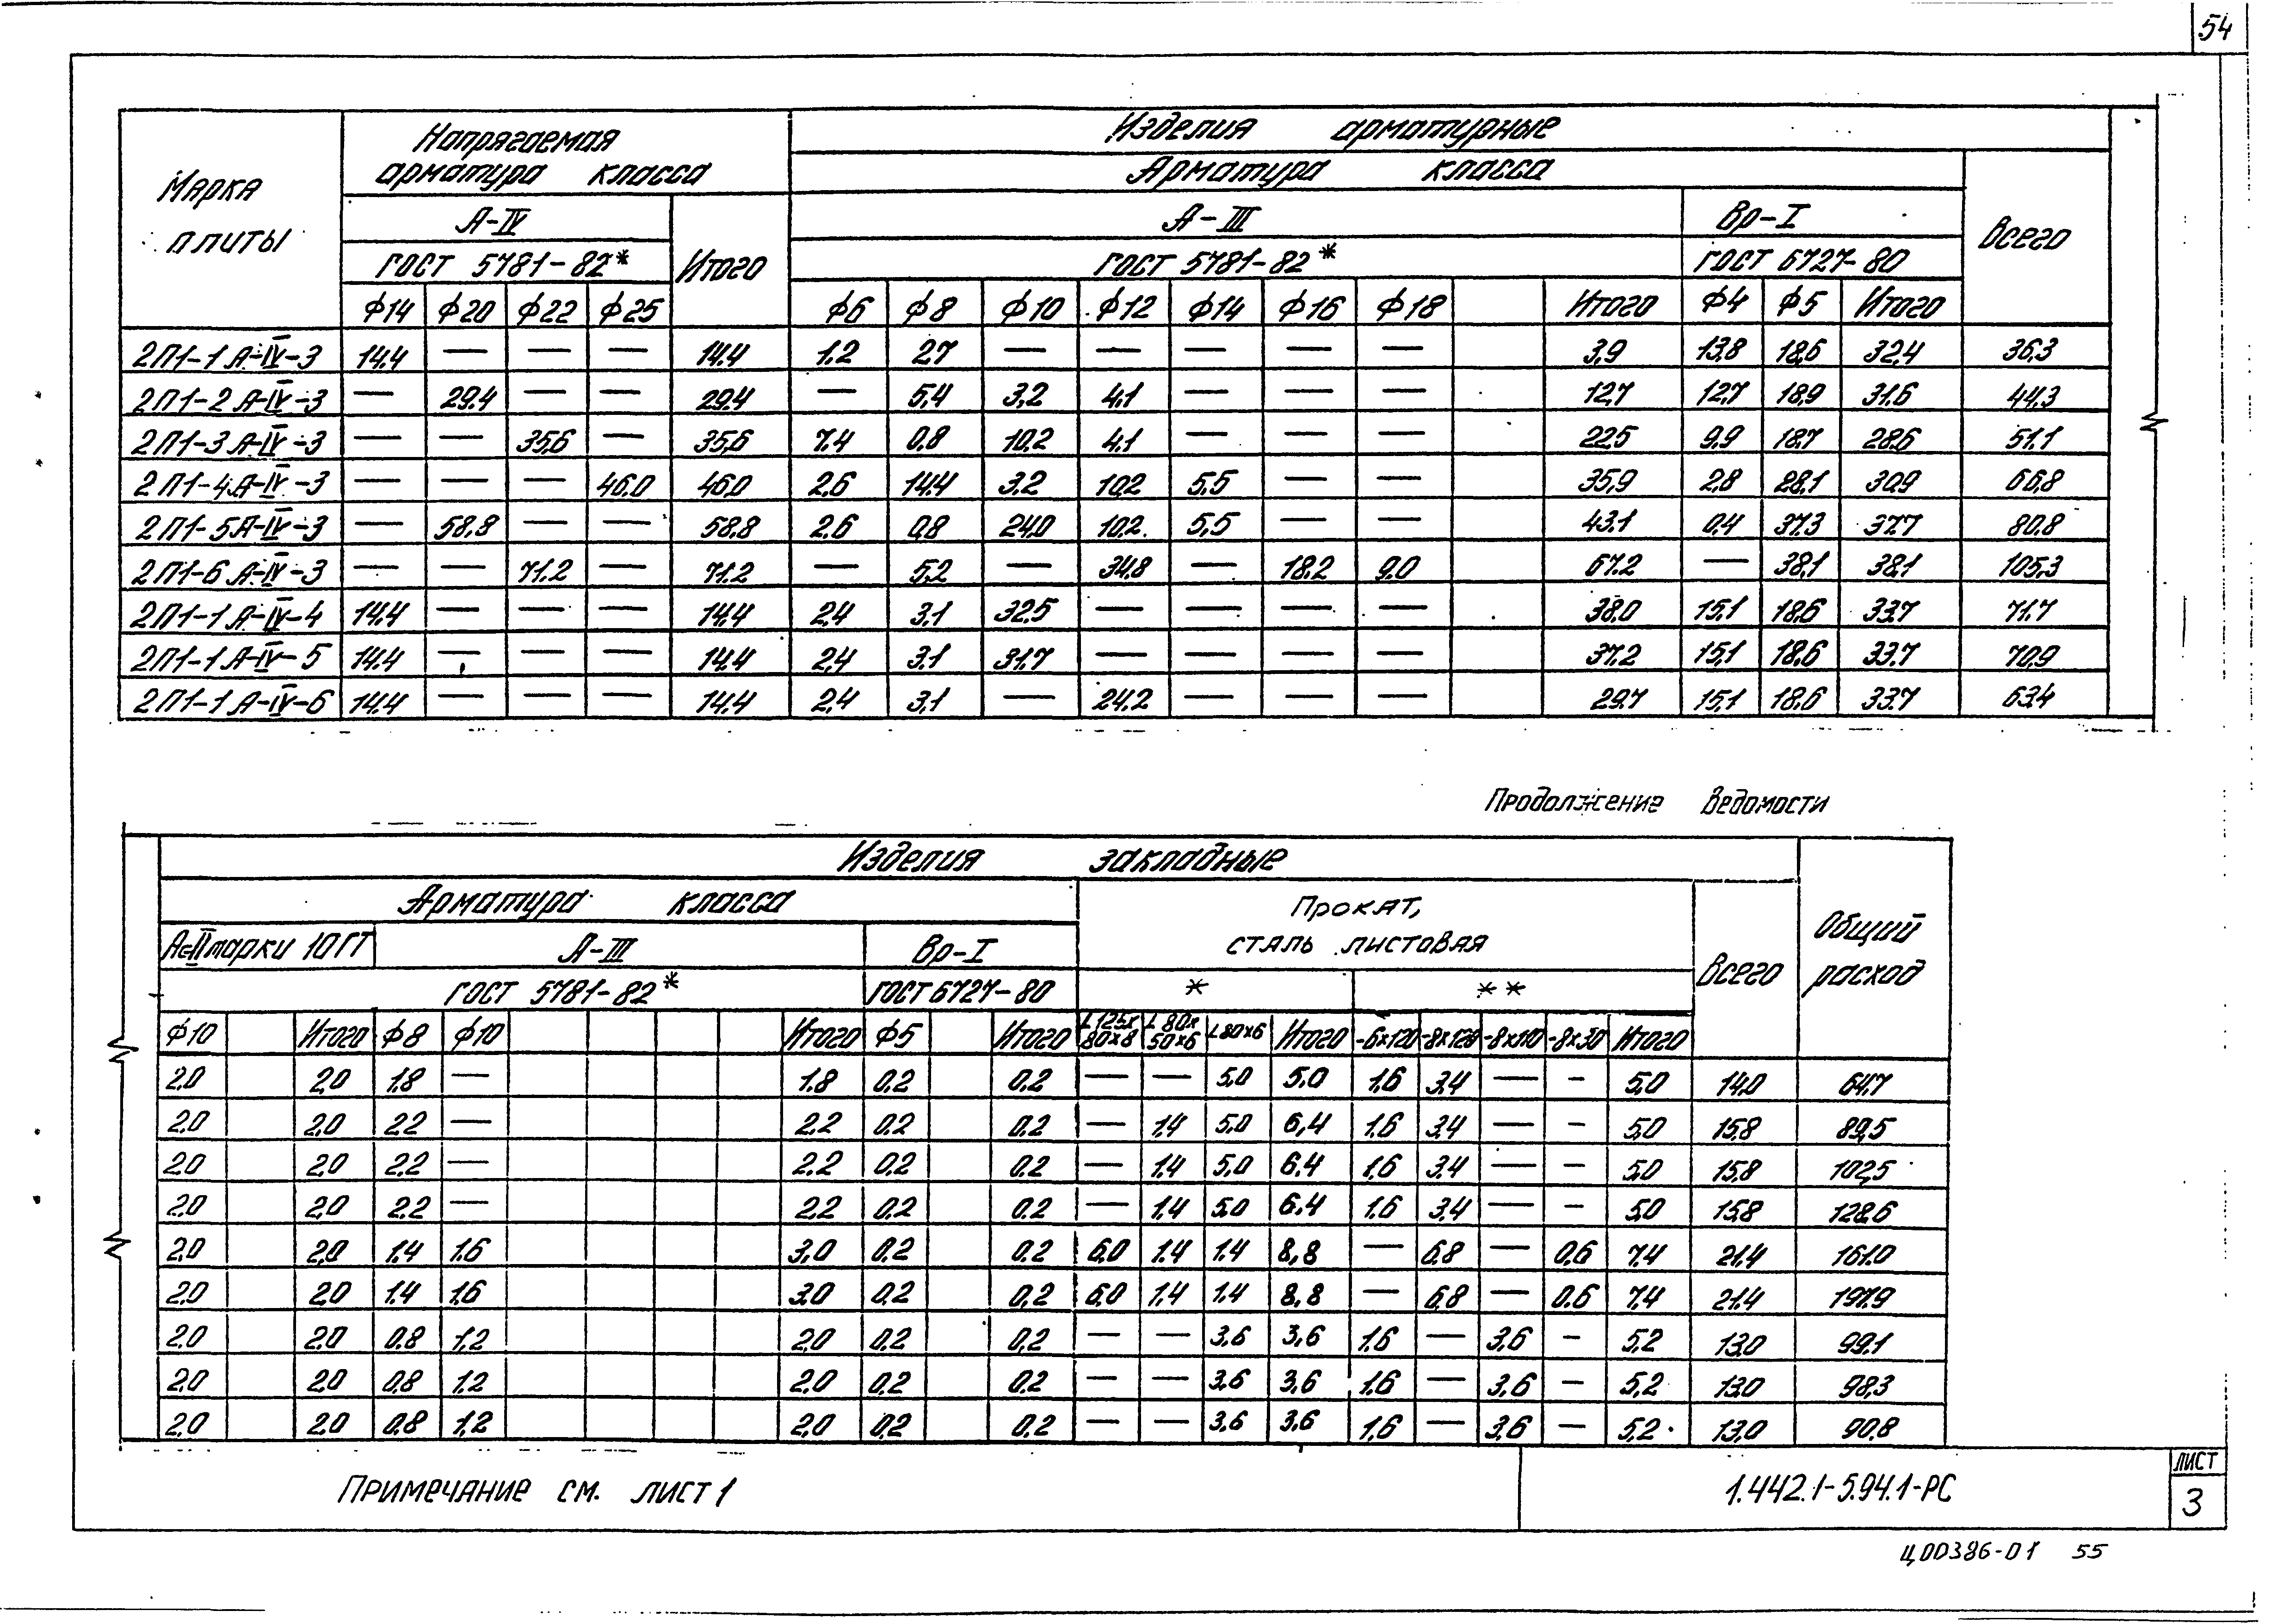 54
Напрягаемая арматура класса
Изделия арматурные
Арматура класса
Марка плиты
А-IV
Итого
А-III
Вр-I
Всего
ГОСТ 5781-82*
ГОСТ 5781-82*
ГОСТ 6727-80
Ф14 Ф20 Ф22 Ф25 Ф6 Ф8 Ф10 Ф12 Ф14 Ф16 Ф18 Итого Ф4 Ф5 Итого
2П1-1А-IV-3 14.4 — — — 14.4 1.2 2.7 — — — — — 3.9 13.8 18.6 32.4 36.3
2П1-2А-IV-3 — 29.4 — — 29.4 — 5.4 3.2 4.1 — — — 12.7 12.7 18.9 31.6 44.3
2П1-3А-IV-3 — — 35.6 — 35.6 7.4 0.8 10.2 4.1 — — — 22.5 9.9 18.7 28.6 51.1
2П1-4А-IV-3 — — — 46.0 46.0 2.6 14.4 3.2 10.2 5.5 — — 35.9 2.8 28.1 30.9 66.8
2П1-5А-IV-3 — 58.8 — — 58.8 2.6 0.8 24.0 10.2 5.5 — — 43.1 0.4 37.3 37.7 80.8
2П1-6А-IV-3 — — 71.2 — 71.2 — 5.2 — 34.8 — 18.2 9.0 67.2 — 38.1 38.1 105.3
2П1-1А-IV-4 14.4 — — — 14.4 2.4 3.1 32.5 — — — — 38.0 15.1 18.6 33.7 71.7
2П1-1А-IV-5 14.4 — — — 14.4 2.4 3.1 31.7 — — — — 37.2 15.1 18.6 33.7 70.9
2П1-1А-IV-6 14.4 — — — 14.4 2.4 3.1 — 24.2 — — — 29.7 15.1 18.6 33.7 63.4
Продолжение ведомости
Изделия закладные
Арматура класса
Прокат, сталь листовая
Всего
Общий расход
Ас-II марки 10ГТ
А-III
Вр-I
ГОСТ 5781-82*
ГОСТ 6727-80
*
**
Ф10 Итого Ф8 Ф10 Итого Ф5 Итого L125х80х8 L80х50х6 L80х6 Итого -6х120 -8х120 -8х110 -8х30 Итого
2.0 2.0 1.8 — 1.8 0.2 0.2 — — 5.0 5.0 1.6 3.4 — — 5.0 14.0 64.7
2.0 2.0 2.2 — 2.2 0.2 0.2 — 1.4 5.0 6.4 1.6 3.4 — — 5.0 15.8 89.5
2.0 2.0 2.2 — 2.2 0.2 0.2 — 1.4 5.0 6.4 1.6 3.4 — — 5.0 15.8 102.5
2.0 2.0 2.2 — 2.2 0.2 0.2 — 1.4 5.0 6.4 1.6 3.4 — — 5.0 15.8 128.6
2.0 2.0 1.4 1.6 3.0 0.2 0.2 6.0 1.4 1.4 8.8 — 6.8 — 0.6 7.4 21.4 161.0
2.0 2.0 1.4 1.6 3.0 0.2 0.2 6.0 1.4 1.4 8.8 — 6.8 — 0.6 7.4 21.4 197.9
2.0 2.0 0.8 1.2 2.0 0.2 0.2 — — 3.6 3.6 1.6 — 3.6 — 5.2 13.0 99.1
2.0 2.0 0.8 1.2 2.0 0.2 0.2 — — 3.6 3.6 1.6 — 3.6 — 5.2 13.0 98.3
2.0 2.0 0.8 1.2 2.0 0.2 0.2 — — 3.6 3.6 1.6 — 3.6 — 5.2 13.0 90.8
Примечание см. лист 1
1.442.1-5.94.1-РС
Лист
3
Ц00386-01 55